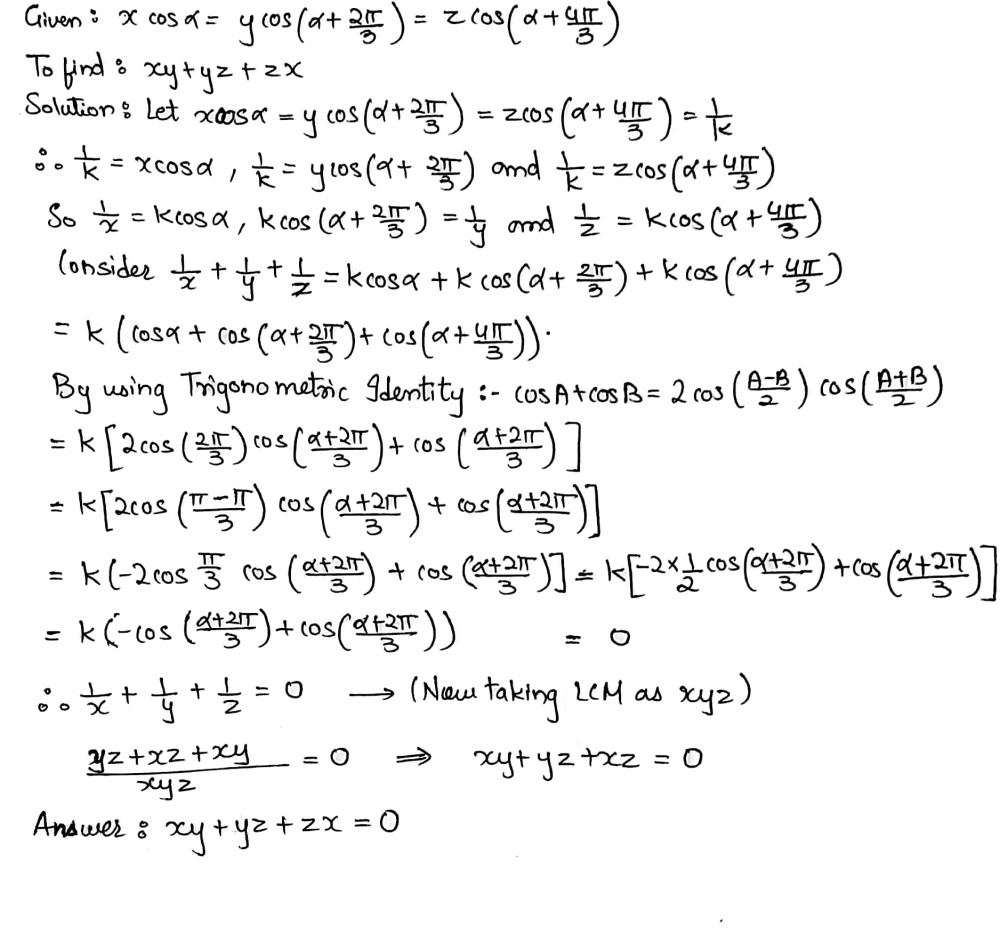 Given : x cos α = y cos(α + 2π/3) = z cos(α + 4π/3)
To find : xy + yz + zx
Solution : Let x cos α = y cos(α + 2π/3) = z cos(α + 4π/3) = 1/k
∴ 1/k = x cos α , 1/k = y cos(α + 2π/3) and 1/k = z cos(α + 4π/3)
So 1/x = k cos α, k cos(α + 2π/3) = 1/y and 1/z = k cos(α + 4π/3)
Consider 1/x + 1/y + 1/z = k cos α + k cos(α + 2π/3) + k cos(α + 4π/3)
= k (cos α + cos(α + 2π/3) + cos(α + 4π/3)).
By using Trigonometric Identity :- cos A + cos B = 2 cos((A-B)/2) cos((A+B)/2)
= k [2cos(2π/3) cos((α+2π)/3) + cos((α+2π)/3)]
= k[2cos((π-π)/3) cos((α+2π)/3) + cos((α+2π)/3)]
= k(-2cos π/3 cos((α+2π)/3) + cos((α+2π)/3)] = k[-2×1/2 cos((α+2π)/3) + cos((α+2π)/3)]
= k(-cos((α+2π)/3) + cos((α+2π)/3)) = 0
∴ 1/x + 1/y + 1/z = 0 → (Now taking LCM as xyz)
(yz + xz + xy)/xyz = 0 ⇒ xy + yz + xz = 0
Answer : xy + yz + zx = 0